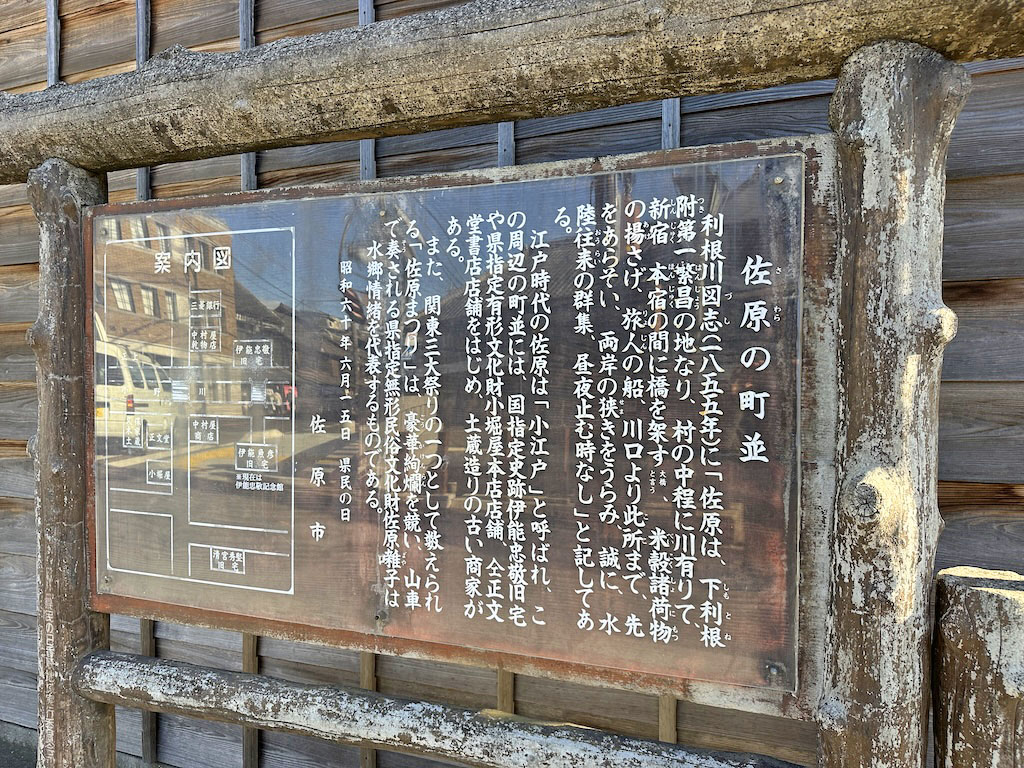 佐原の町並
利根川図志(一八五五年)に「佐原は、下利根
附第一繁昌の地なり、村の中程に川有りて、
新宿、本宿の間に橋を架す(大橋と言う)、米穀諸荷物
の揚さげ、旅人の船、川口より此所まで、先
をあらそい、両岸の狭きをうらみ、誠に、水
陸往来の群集、昼夜止む時なし」と記してあ
る。
江戸時代の佐原は「小江戸」と呼ばれ、こ
の周辺の町並には、国指定史跡伊能忠敬旧宅
や県指定有形文化財小堀屋本店店舗、仝正文
堂書店店舗をはじめ、土蔵造りの古い商家が
ある。
また、関東三大祭りの一つとして数えられ
る「佐原まつり」は、豪華絢爛を競い、山車
で奏される県指定無形民俗文化財佐原囃子は
水郷情緒を代表するものである。
昭和六十年六月十五日 県民の日
佐原市
案内図
三菱銀行
中村屋
乾物店
伊能忠敬
旧宅
川
中村屋
商店
正文堂
土蔵
小堀屋
伊能魚彦
旧宅
※現在は
伊能忠敬記念館
清宮秀堅
旧宅